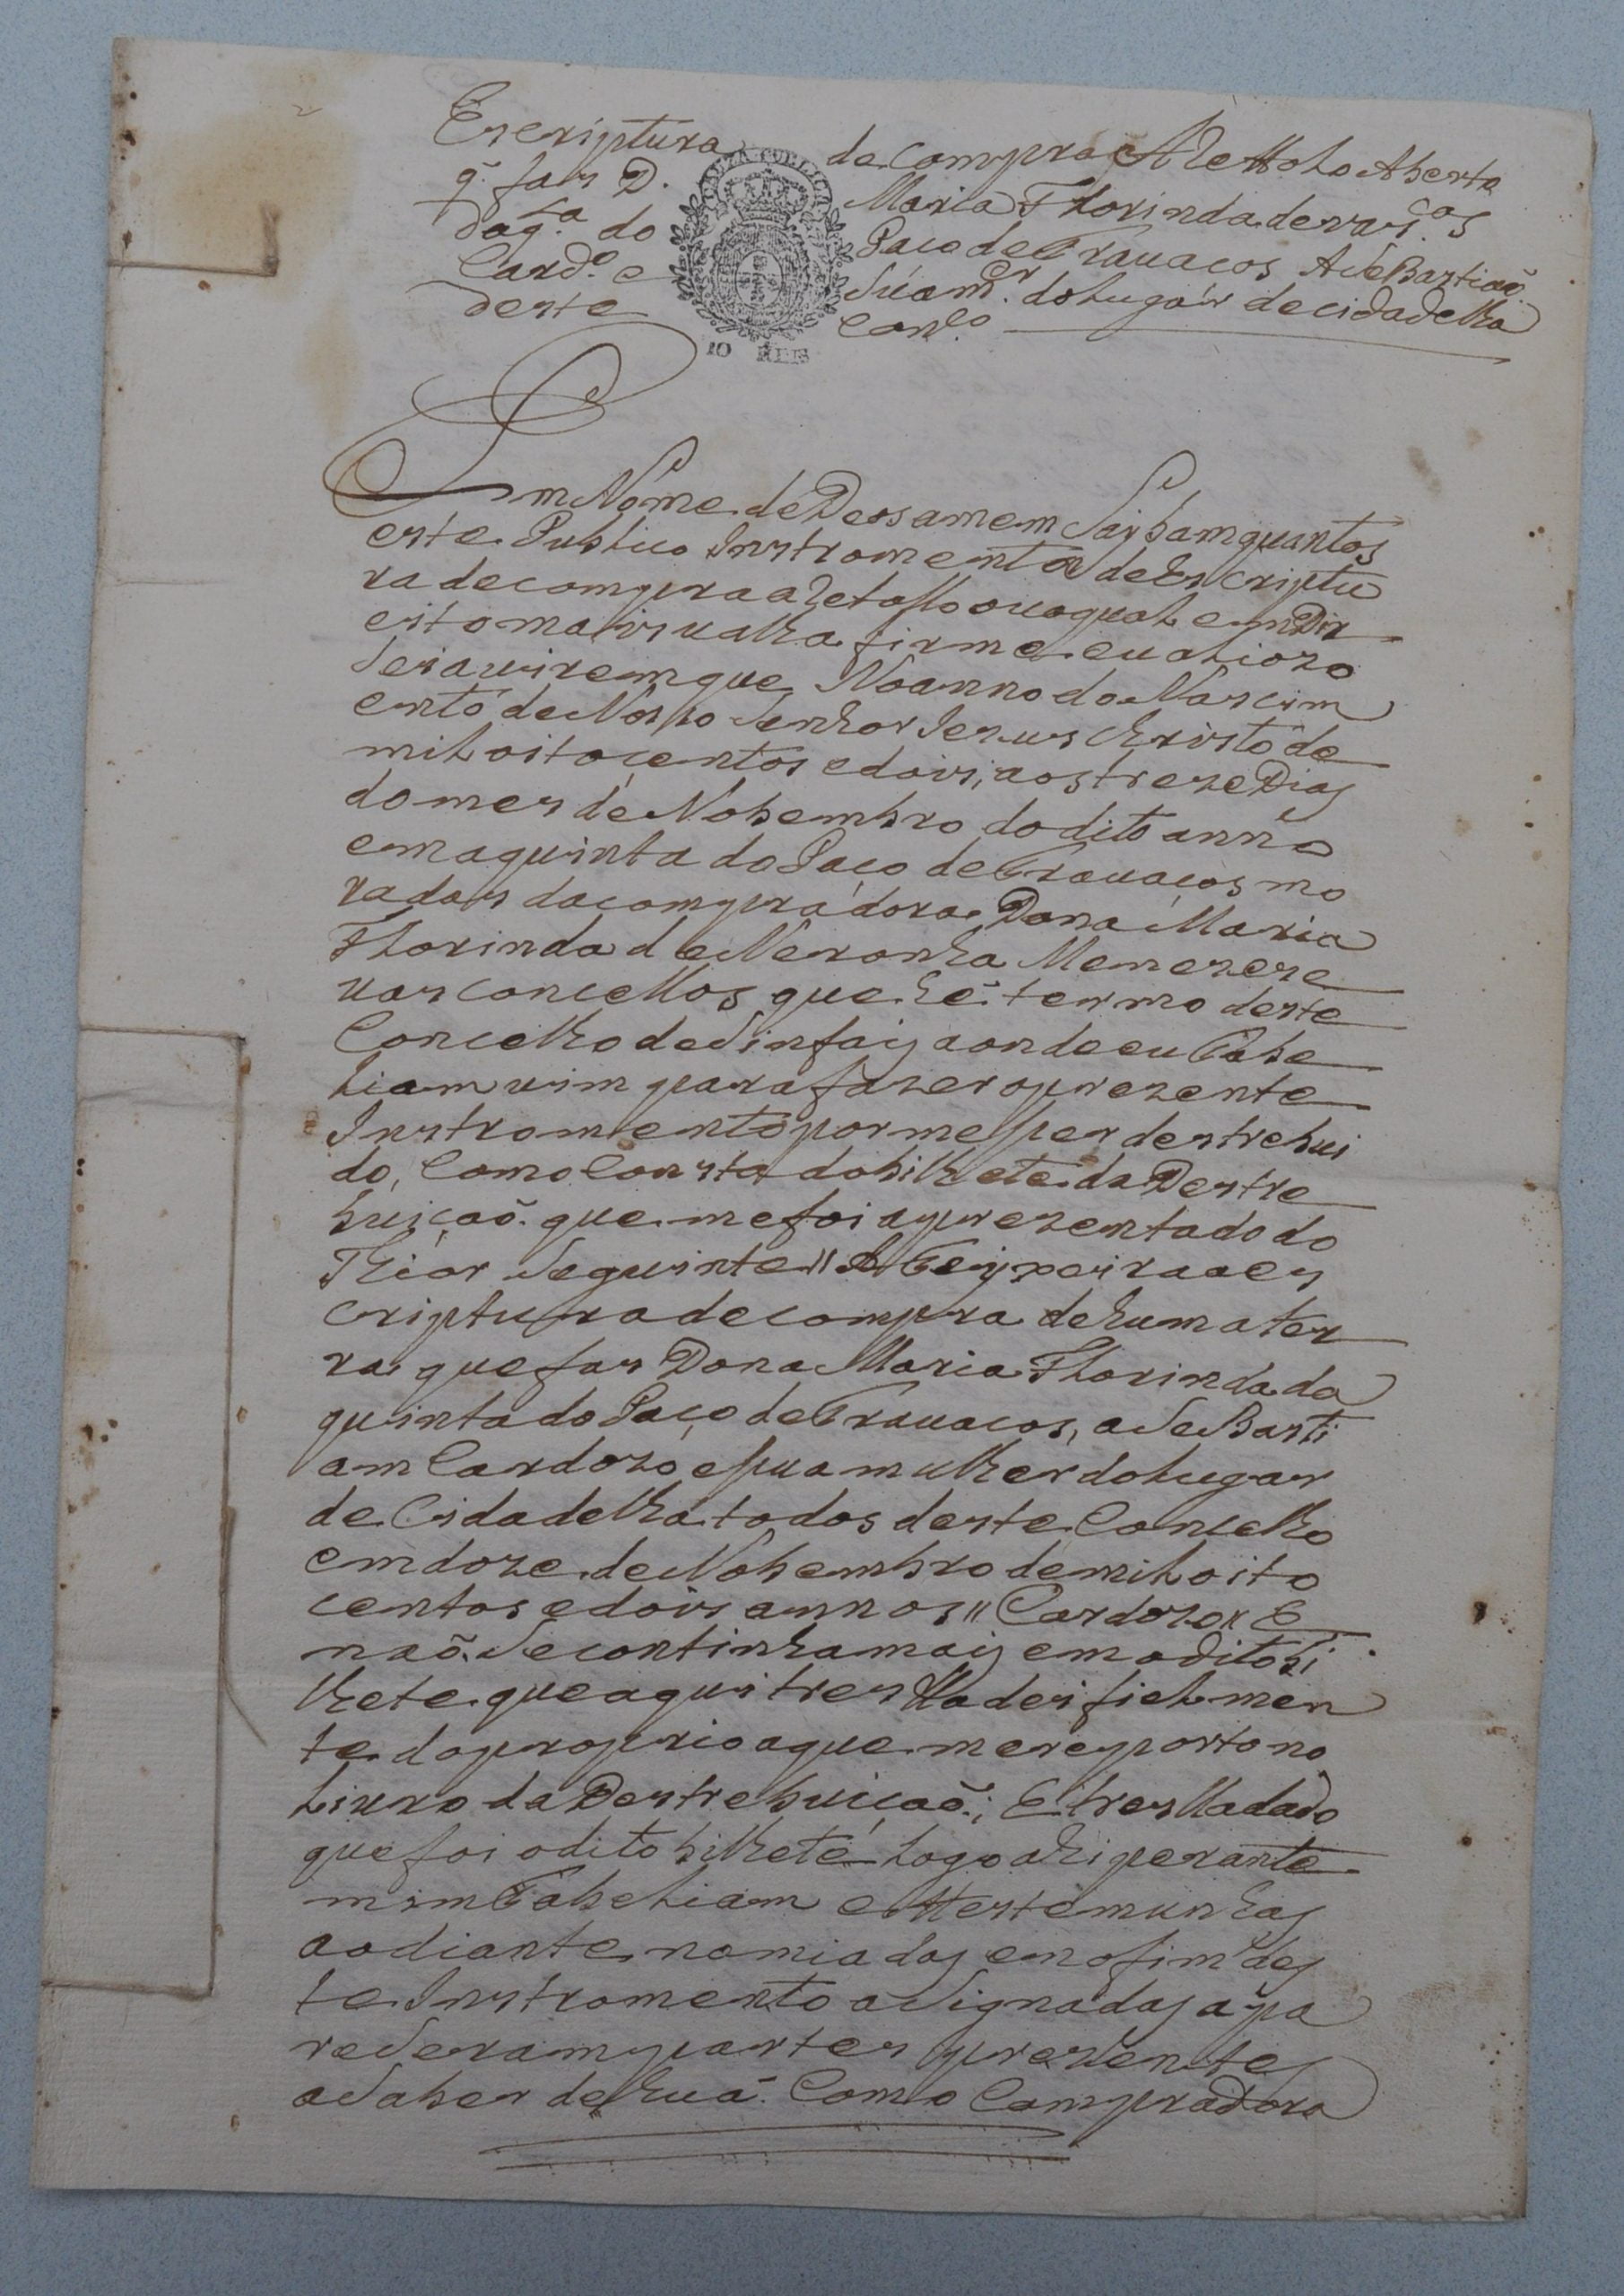 Escriptura da compra A Rettolho Aberto
q̃ fas D. Maria Florinda de vasc.os
da q.ta do Paco de Trauacos A SeBastiaõ
Card.o e Súa m.er do Lugár de cidadelha
deste Con.co
10 REIS
Em Nome de Deos amem Saybam quantos
este Publico Instromento de Escriptu
ra de compra a Retollo ou o qual em Dir
eito mais valha firme e valiozo
Seia virem que No anno do Nascim
ento de Nosso Senhor Jezus Christo de
mil oito centos e dois, aos treze Dias
do mes de Nobembro do dito anno
em a quinta do Paço de Trauaços mo
radas da compradora Dona Maria
Florinda de Neronha Menezes e
vasconcellos que hé termo deste
Concelho de Sinfais aonde eu Tabe
liam vim para fazer o prezente
Instromento por me sser destrebui
do, Como Consta do bilhete da Destre
buiçaõ que me foi aprezentado do
Thior Seguinte // A Teixeira a es
criptura de compra de huma ter
ra que fas Dona Maria Florinda da
quinta do Paço de Trauacos, a SeBasti
am Cardozo e sua mulher do lugar
de Cidadelha todos deste Concelho
em doze de Nobembro de mil oito
centos e dois annos // Cardozo // E
naõ Se continha mais em o dito bi
lhete que aqui tresLladei fielmen
te do proprio a que me reporto no
Livro da Destrebuicaõ; E tresLladado
que foi o dito bilhete logo ahi perante
mim Tabeliam e Ttestemunhas
ao diante nomiadas em o fim des
te Instromento aSignadas apa
reSeram partes prezentes
a Saber de huá Como Compradora